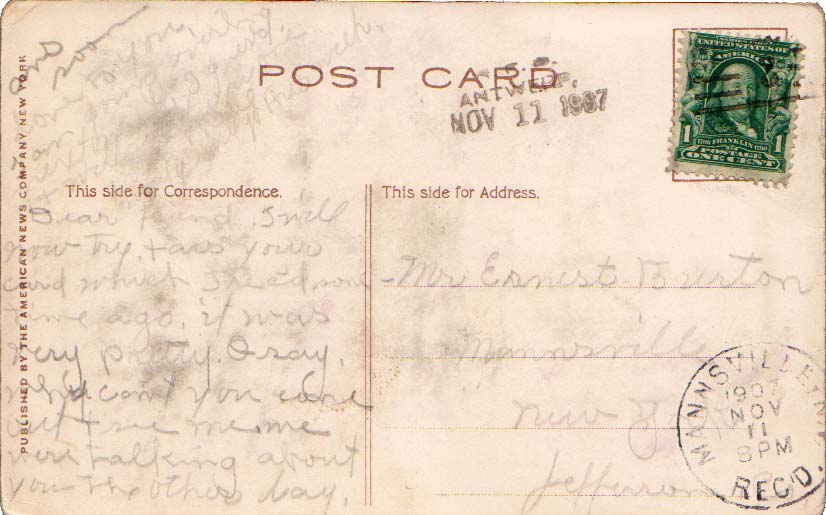 POST CARD
ANTWERP,
NOV 11 1907
UNITED STATES OF
AMERICA
1 FRANKLIN 1
POSTAGE
ONE CENT
This side for Correspondence.
This side for Address.
PUBLISHED BY THE AMERICAN NEWS COMPANY NEW YORK
and
soon
Dear friend, I will
now try & ans your
card which I rec'd some
time ago, it was
very pretty. O say,
why can't you come
out & see me. me
were talking about
you the other day,
Mr Ernest Burton
Mannsville
New York
Jefferson Co
MANNSVILLE N.Y.
1907
NOV
11
8 PM
REC'D.